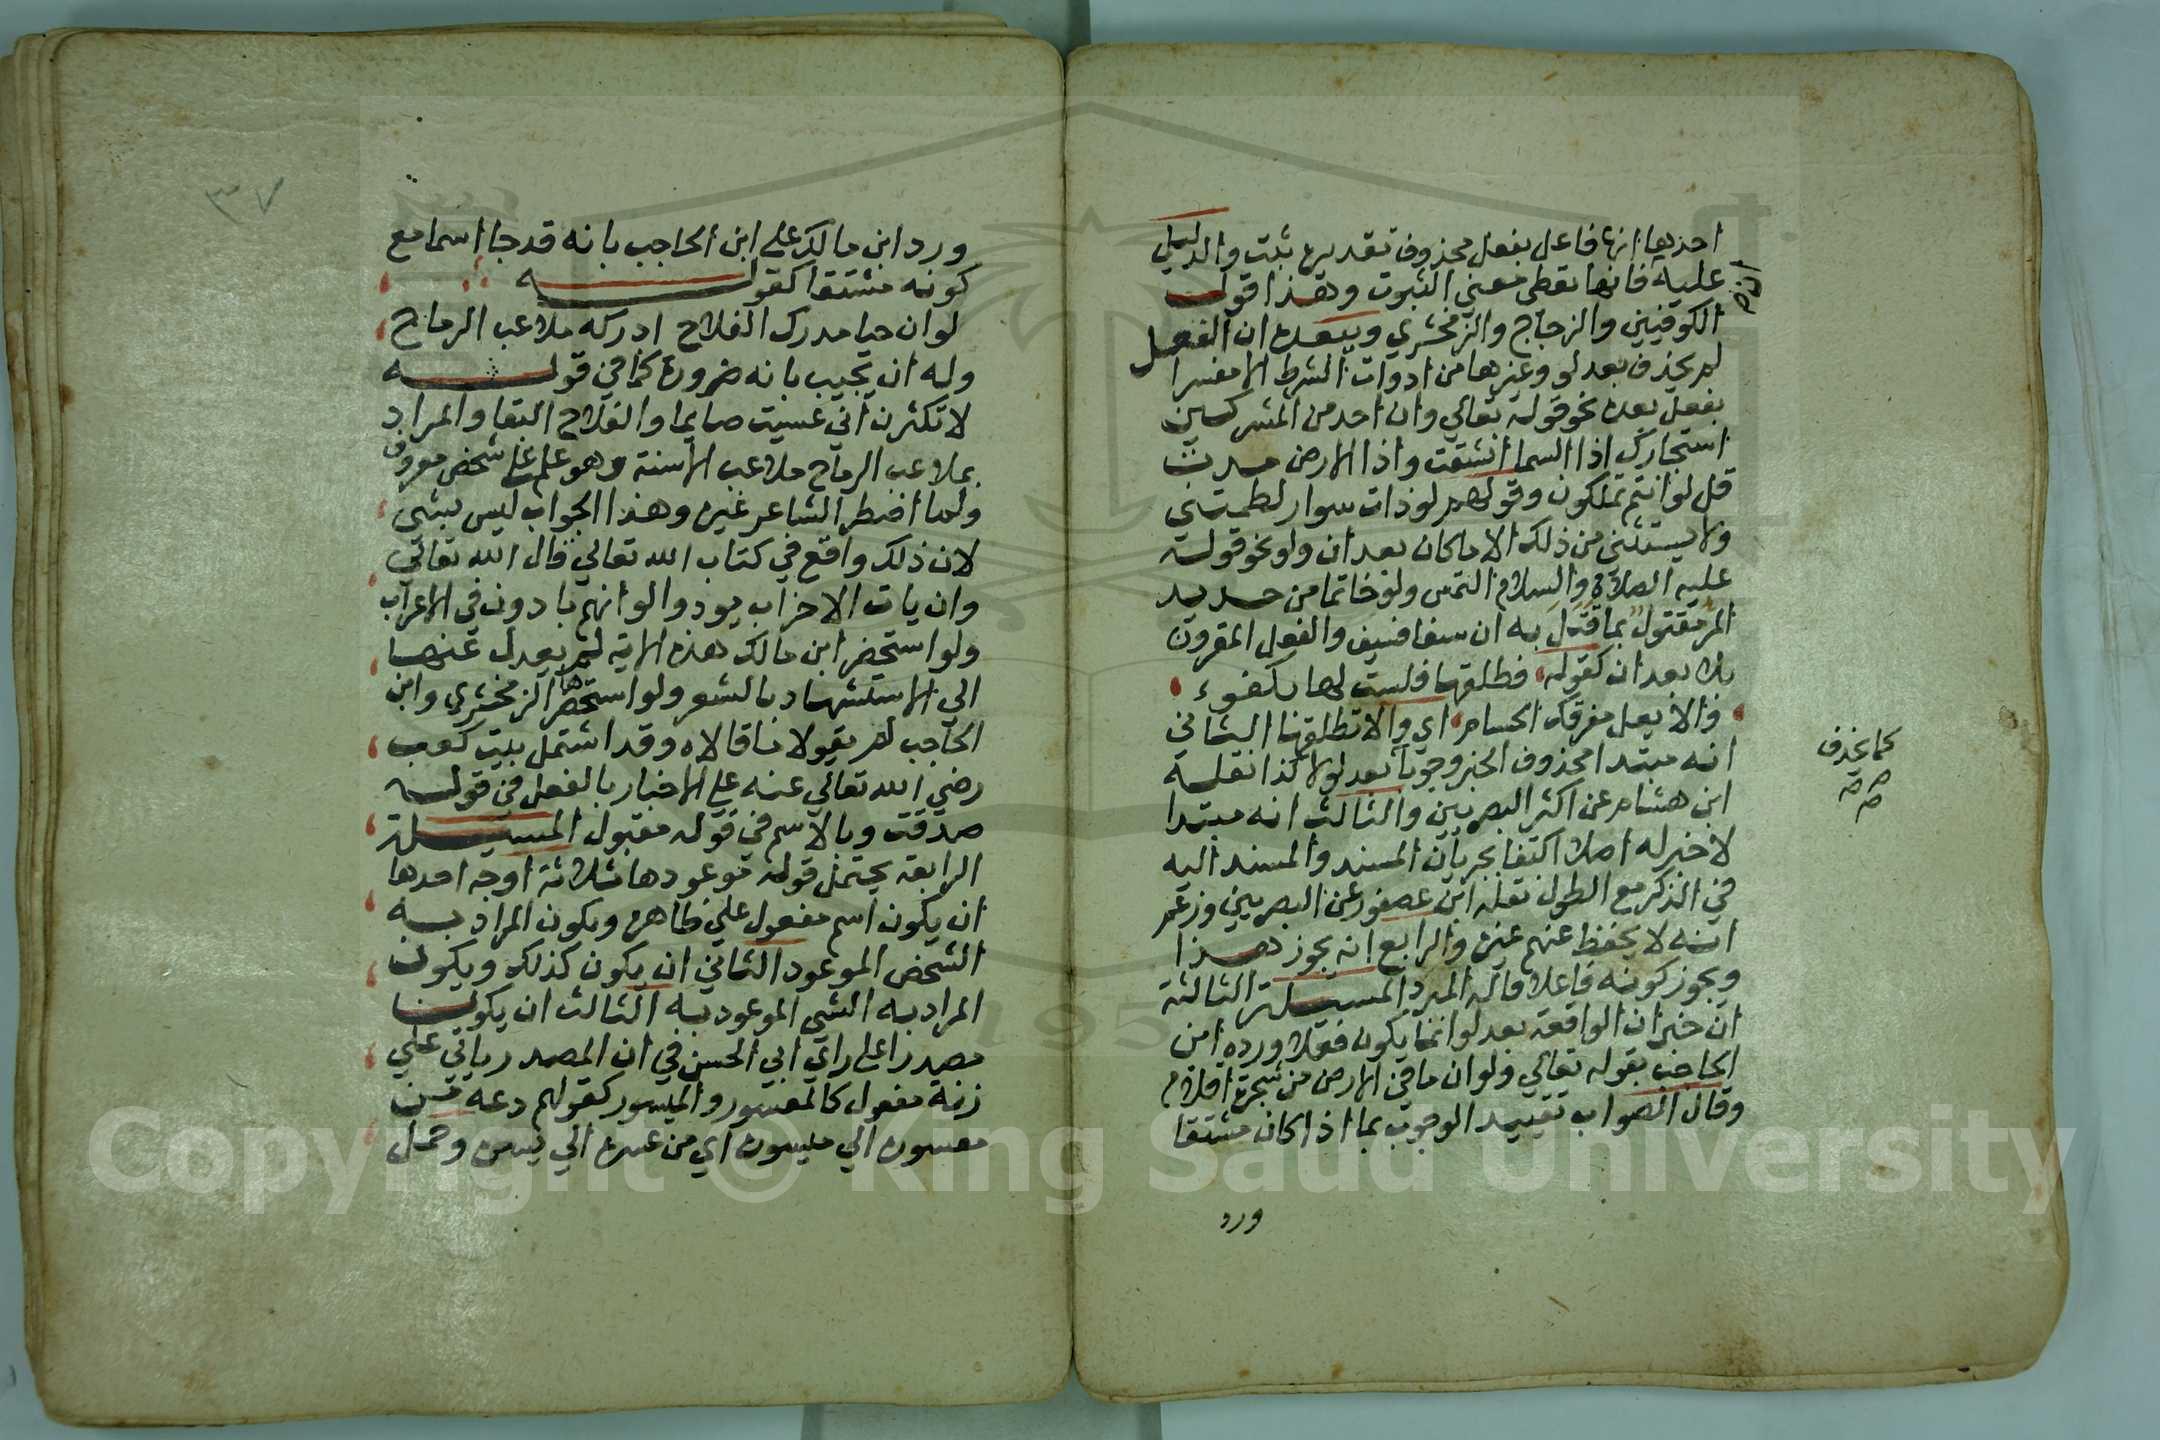 احدها انها فاعل بفعل محذوف تقديره ثبت والدليل
عليه فانها تعطي معنى الثبوت وهذا قول
الكوفيين والزجاج والزمخشري ويبعده ان الفعل
لم يحذف بعد لو وغيرها من ادوات الشرط الا مفسرا
بفعل بعده نحو قوله تعالي وان احد من المشركين
استجارك اذا السما انشقت واذا الارض مدت
قل لو انتم تملكون وقولهم لو ذات سوار لطمتني
ولا يستثني من ذلك الا ما كان بعد ان ولو نحو قوله
عليه الصلاة والسلام التمس ولو خاتما من حديد
المر مقتول بما قتل به ان سيفا فسيف والفعل المقرون
بلا بعد ان كقوله فطلقها فلست لها بكفوء
والا يعل مفرقك الحسام اي والا تطلقها الثاني
انه مبتدا محذوف الخبر وجوبا بعد لولا كذا نقله
ابن هشام عن اكثر البصريين والثالث انه مبتدا
لا خبر له اصلا اكتفا بجريان المسند والمسند اليه
في الذكر مع الطول نقله ابن عصفور عن البصريين وزعم
انه لا يحفظ عنهم غيره والرابع انه يجوز هذا
ويجوز كونه فاعلا قاله المبرد المسيلة الثالثة
ان خبر ان الواقعة بعد لو انما يكون فعلا ورده ابن
الحاجب بقوله تعالي ولو ان ما في الارض من شجرة اقلام
وقال الصواب تقييد الوجوب بما اذا كان مشتقا
ورد
كما يحذف
صح
٣٧
ورد ابن مالك علي ابن الحاجب بانه قد جا اسما مع
كونه مشتقا كقوله
لو ان حيا مدرك الفلاح ادركه ملاعب الرماح
وله ان يجيب بانه ضرورة كما في قوله
لا تكثرن اني عسيت صايما والفلاح البقا والمراد
بملاعب الرماح ملاعب الاسنة وهو علم علي شخص معروف
ولما اضطر الشاعر غيره وهذا الجواب ليس بشي
لان ذلك واقع في كتاب الله تعالي قال الله تعالي
وان يات الاحزاب يودوا لو انهم بادون في الاعراب
ولو استحضر ابن مالك هذه الاية لم يعدل عنها
الي الاستشهاد بالشعر ولو استحضرها الزمخشري وابن
الحاجب لم يقولا ما قالاه وقد اشتمل بيت كعب
رضي الله تعالي عنه علي الاخبار بالفعل في قوله
صدقت وبالاسم في قوله مقبول المسيلة
الرابعة يحتمل قوله موعودها ثلاثة اوجه احدها
ان يكون اسم مفعول علي ظاهره ويكون المراد به
الشخص الموعود الثاني ان يكون كذلك ويكون
المراد به الشي الموعود به الثالث ان يكون
مصدرا علي راي ابي الحسن في ان المصدر ياتي علي
زنة مفعول كالمعسور والميسور كقولهم دعه من
معسوره الي ميسوره اي من عسره الي يسره وحمل
Copyright © King Saud University
1957